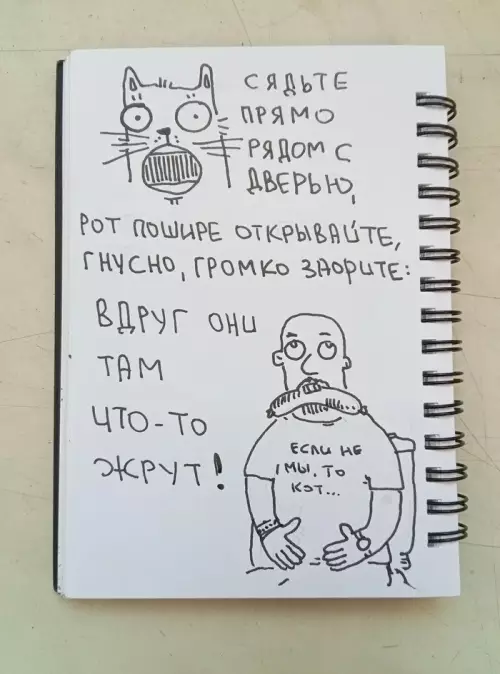 СЯДЬТЕ
ПРЯМО
РЯДОМ С
ДВЕРЬЮ,
РОТ ПОШИРЕ ОТКРЫВАЙТЕ,
ГНУСНО, ГРОМКО ЗАОРИТЕ:
ВДРУГ ОНИ
ТАМ
ЧТО-ТО
ЖРУТ!
ЕСЛИ НЕ
МЫ, ТО
КЭТ...